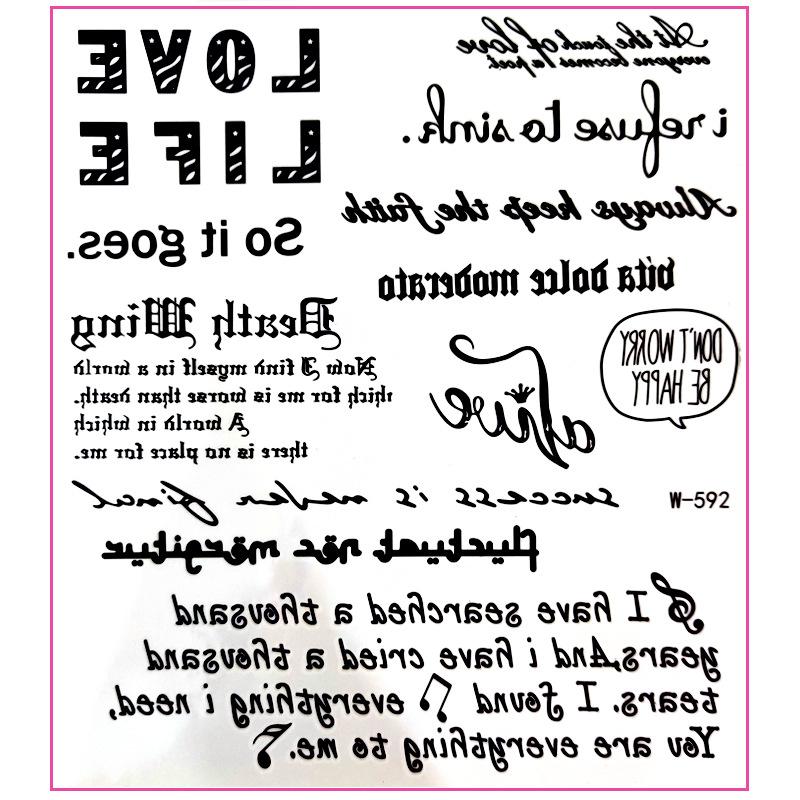 LOVE
LIFE
So it goes.
Death Wing
Now I find myself in a world
which for me is worse than death.
A world in which
there is no place for me.
At the touch of love
everyone becomes a poet
i refuse to sink.
Always keep the faith
vita dolce moderato
alive
DON'T WORRY
BE HAPPY
success is never final
W-592
fluctuat nec mergitur
I have searched a thousand
years,And i have cried a thousand
tears. I found everything i need,
You are everything to me.